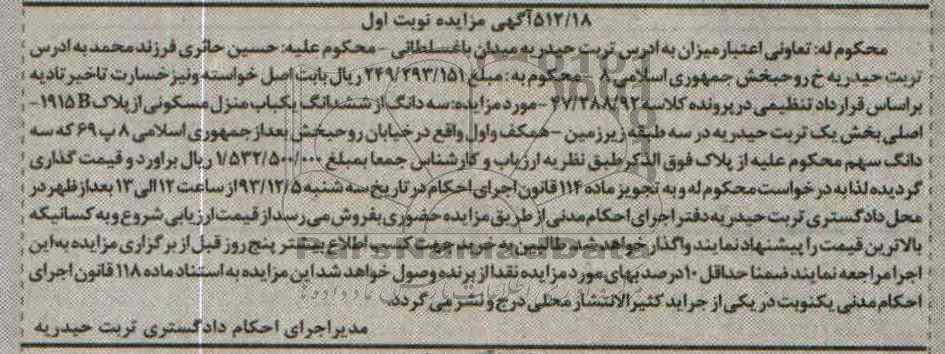 ۵۱۲/۱۸آگهی مزایده نوبت اول
محکوم له: تعاونی اعتبار میزان به ادرس تربت حیدریه میدان باغسلطانی - محکوم علیه: حسین حائری فرزند محمد به ادرس
تربت حیدریه خ روحبخش جمهوری اسلامی ۸ - محکوم به: مبلغ ۲۴۹/۲۹۳/۱۵۱ ریال بابت اصل خواسته و نیز خسارت تاخیر تادیه
بر اساس قرارداد تنظیمی در پرونده کلاسه ۴۷/۲۸۸/۹۲ - مورد مزایده: سه دانگ از ششدانگ یکباب منزل مسکونی از پلاک ۱۹۱۵B -
اصلی بخش یک تربت حیدریه در سه طبقه زیرزمین - همکف و اول واقع در خیابان روحبخش بعد از جمهوری اسلامی ۸ پ ۶۹ که سه
دانگ سهم محکوم علیه از پلاک فوق الذکر طبق نظریه ارزیاب و کارشناس جمعا بمبلغ ۱/۵۳۲/۵۰۰/۰۰۰ ریال براورد و قیمت گذاری
گردیده لذا به درخواست محکوم له و به تجویز ماده ۱۱۴ قانون اجرای احکام در تاریخ سه شنبه ۹۳/۱۲/۵ از ساعت ۱۲ الی ۱۳ بعد از ظهر در
محل دادگستری تربت حیدریه دفتر اجرای احکام مدنی از طریق مزایده حضوری بفروش می رسد از قیمت ارزیابی شروع و به کسانیکه
بالاترین قیمت را پیشنهاد نمایند واگذار خواهد شد طالبین به خرید جهت کسب اطلاع بیشتر پنج روز قبل از برگزاری مزایده به این
اجرا مراجعه نمایند ضمنا حداقل ۱۰ درصد بهای مورد مزایده نقدا از برنده وصول خواهد شد این مزایده به استناد ماده ۱۱۸ قانون اجرای
احکام مدنی یکنوبت در یکی از جراید کثیرالانتشار محلی درج و نشر می گردد.
مدیر اجرای احکام دادگستری تربت حیدریه
ParsNamadData